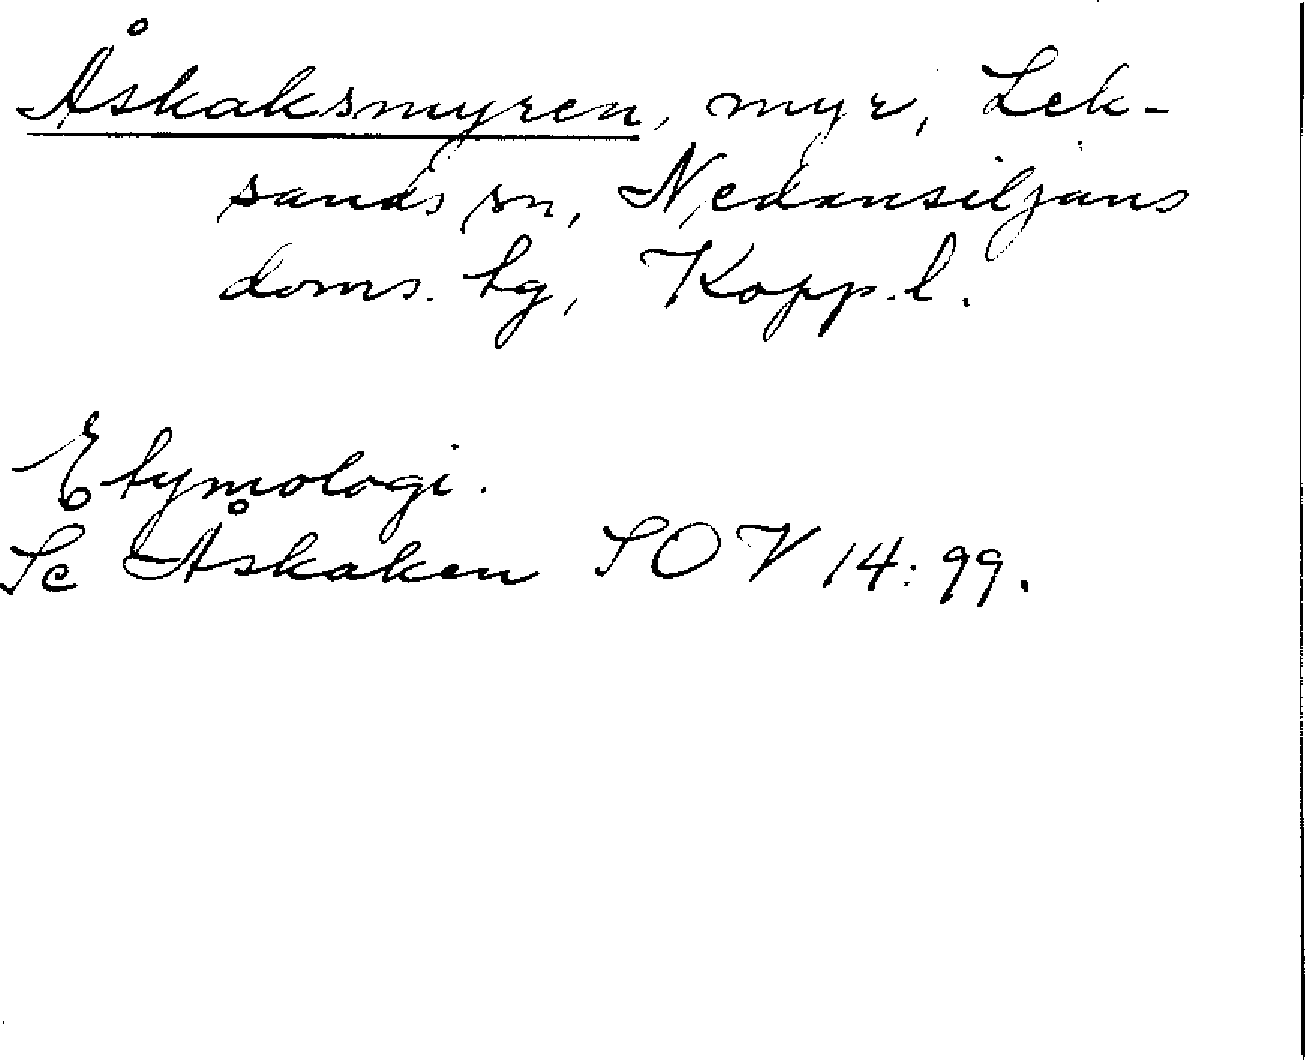 Åskaksmyren, myr, Lek-
sands sn, Nedansiljans
doms. tg, Kopp. l.
Etymologi.
Se Åskaken SOV 14:99.